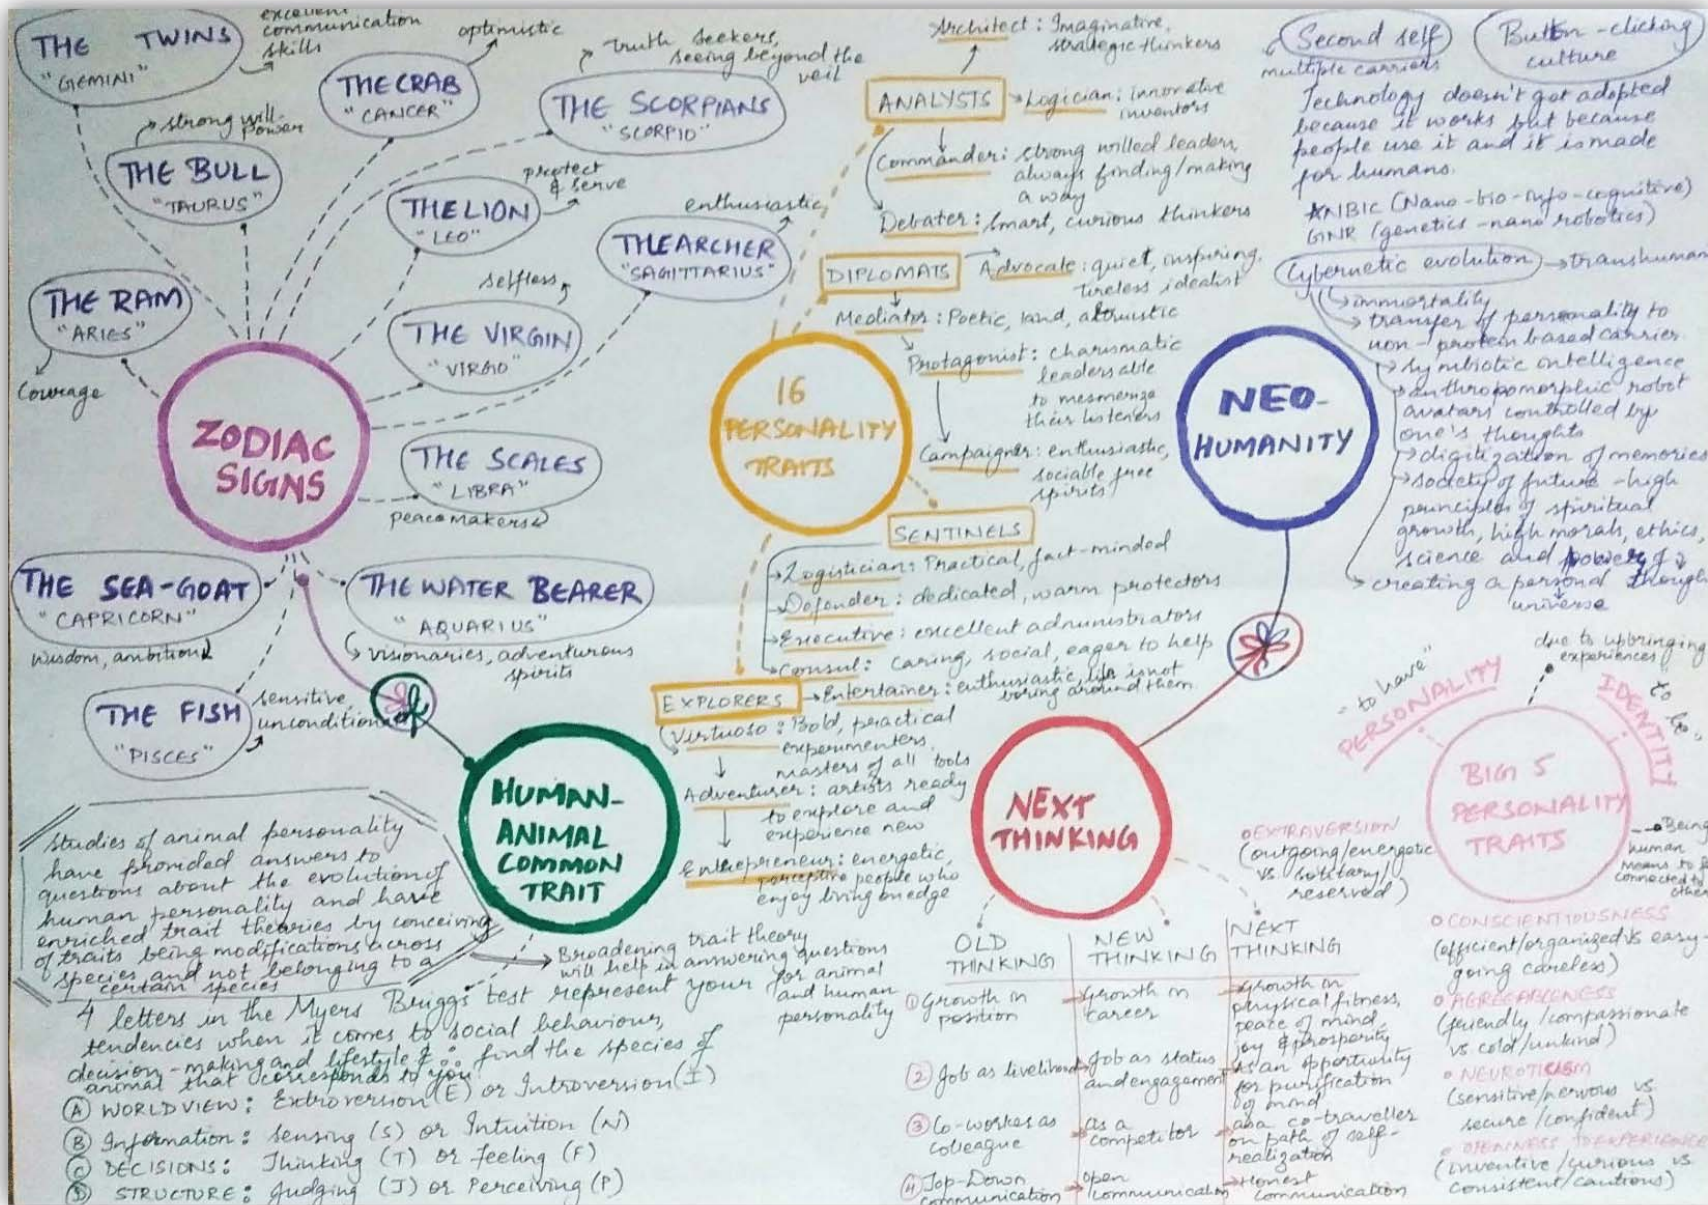 THE TWINS
"GEMINI"
excellent
communication
skills
THE CRAB
"CANCER"
optimistic
THE SCORPIANS
"SCORPIO"
truth seekers,
seeing beyond the
veil
THE BULL
"TAURUS"
strong will-
power
THE LION
"LEO"
protect
& serve
THE ARCHER
"SAGITTARIUS"
enthusiastic
THE RAM
"ARIES"
Courage
THE VIRGIN
"VIRGO"
selfless
ZODIAC
SIGNS
THE SCALES
"LIBRA"
peacemakers
THE SEA-GOAT
"CAPRICORN"
wisdom, ambition
THE WATER BEARER
"AQUARIUS"
visionaries, adventurous
spirits
THE FISH
"PISCES"
sensitive
16
PERSONALITY
TRAITS
ANALYSTS
Architect: Imaginative,
strategic thinkers
Logician: innovative
inventors
Commander: strong willed leader,
always finding/making
a way
Debater: Smart, curious thinkers
DIPLOMATS
Advocate: quiet, inspiring,
tireless idealist
Mediator: Poetic, kind, altruistic
Protagonist: charismatic
leaders able
to mesmerize
their listeners
Campaigner: enthusiastic,
sociable free
spirits
SENTINELS
Logistician: Practical, fact-minded
Defender: dedicated, warm protectors
Executive: excellent administrators
Consul: Caring, social, eager to help
EXPLORERS
Entertainer: enthusiastic, life is not
boring around them
Virtuoso: Bold, practical
experimenters,
masters of all tools
Adventurer: artists ready
to explore and
experience new
Entrepreneur: energetic,
perceptive people who
enjoy living on edge
Second self
multiple carriers
Button-clicking
culture
Technology doesn't get adopted
because it works but because
people use it and it is made
for humans.
NBIC (Nano-bio-info-cognitive)
GNR (genetics-nano robotics)
Cybernetic evolution
transhuman
immortality
transfer of personality to
non-protein based carrier
Symbiotic intelligence
anthropomorphic robot
avatars controlled by
one's thoughts
digitization of memories
society of future - high
principles of spiritual
growth, high morals, ethics,
science and power of
creating a personal
universe
NEO-
HUMANITY
HUMAN-
ANIMAL
COMMON
TRAIT
Studies of animal personality
have provided answers to
questions about the evolution of
human personality and have
enriched trait theories by conceiving
of traits being modifications across
species and not belonging to a
certain species
Broadening trait theory
will help in answering questions
for animal
and human
personality
4 letters in the Myers Briggs test represent your
tendencies when it comes to social behaviour,
decision-making and lifestyle & ∴ find the species of
animal that corresponds to you
A WORLDVIEW: Extroversion (E) or Introversion (I)
B Information: Sensing (S) or Intuition (N)
C DECISIONS: Thinking (T) or Feeling (F)
D STRUCTURE: Judging (J) or Perceiving (P)
NEXT
THINKING
OLD
THINKING
NEW
THINKING
NEXT
THINKING
1 Growth in
position
Growth in
career
Growth in
physical fitness,
peace of mind,
joy & prosperity
2 Job as livelihood
Job as status
and engagement
as an opportunity
for purification
of mind
3 Co-workers as
colleague
as a
competitor
as a co-traveller
on path of self-
realization
4 Top-Down
communication
open
communication
Honest
communication
due to upbringing
experiences
"to have"
PERSONALITY
IDENTITY
BIG 5
PERSONALITY
TRAITS
Being
human
means to
connected to
EXTRAVERSION
(outgoing/energetic
vs solitary/
reserved)
CONSCIENTIOUSNESS
(efficient/organized vs easy-
going careless)
AGREEABLENESS
(friendly/compassionate
vs cold/unkind)
NEUROTICISM
(sensitive/nervous vs
secure/confident)
OPENNESS TO EXPERIENCE
(inventive/curious vs
consistent/cautious)